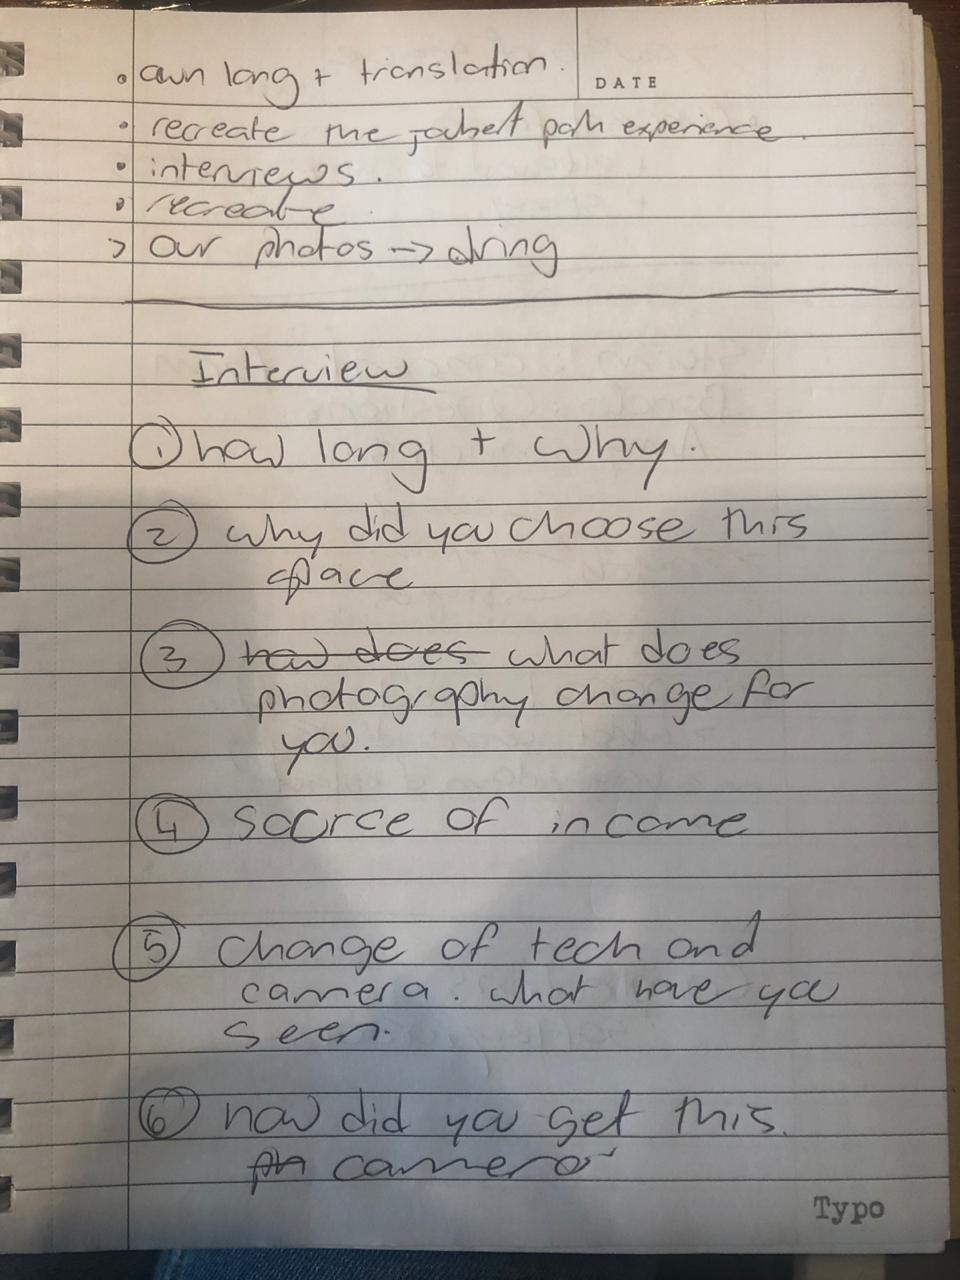 • own lang + translation.
DATE
• recreate the joubert park experience.
• interviews.
• recreate.
> our photos → 
Interview
① how long + why.
② why did you choose this
space
③ how does what does
photography change for
you.
④ socrce of income
⑤ change of tech and
camera. what have you
seen.
⑥ how did you get this.
ph camera
Typo